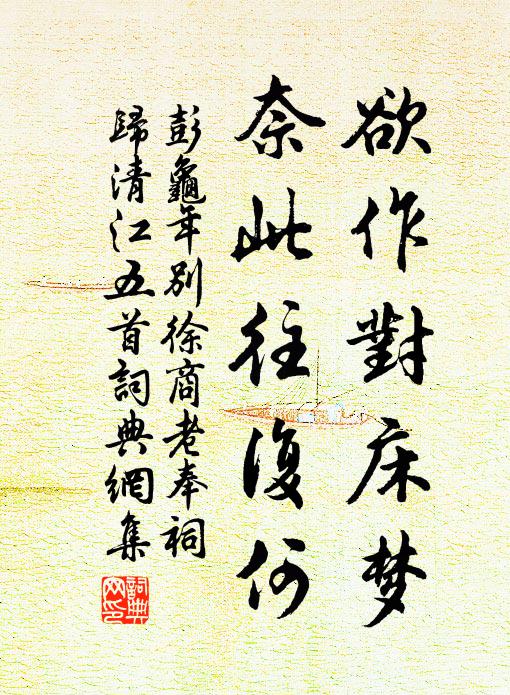 欲作對床梦
奈此往復何
彭龜年别徐商老奉祠
歸清江五首詞典網集
詞典
网印